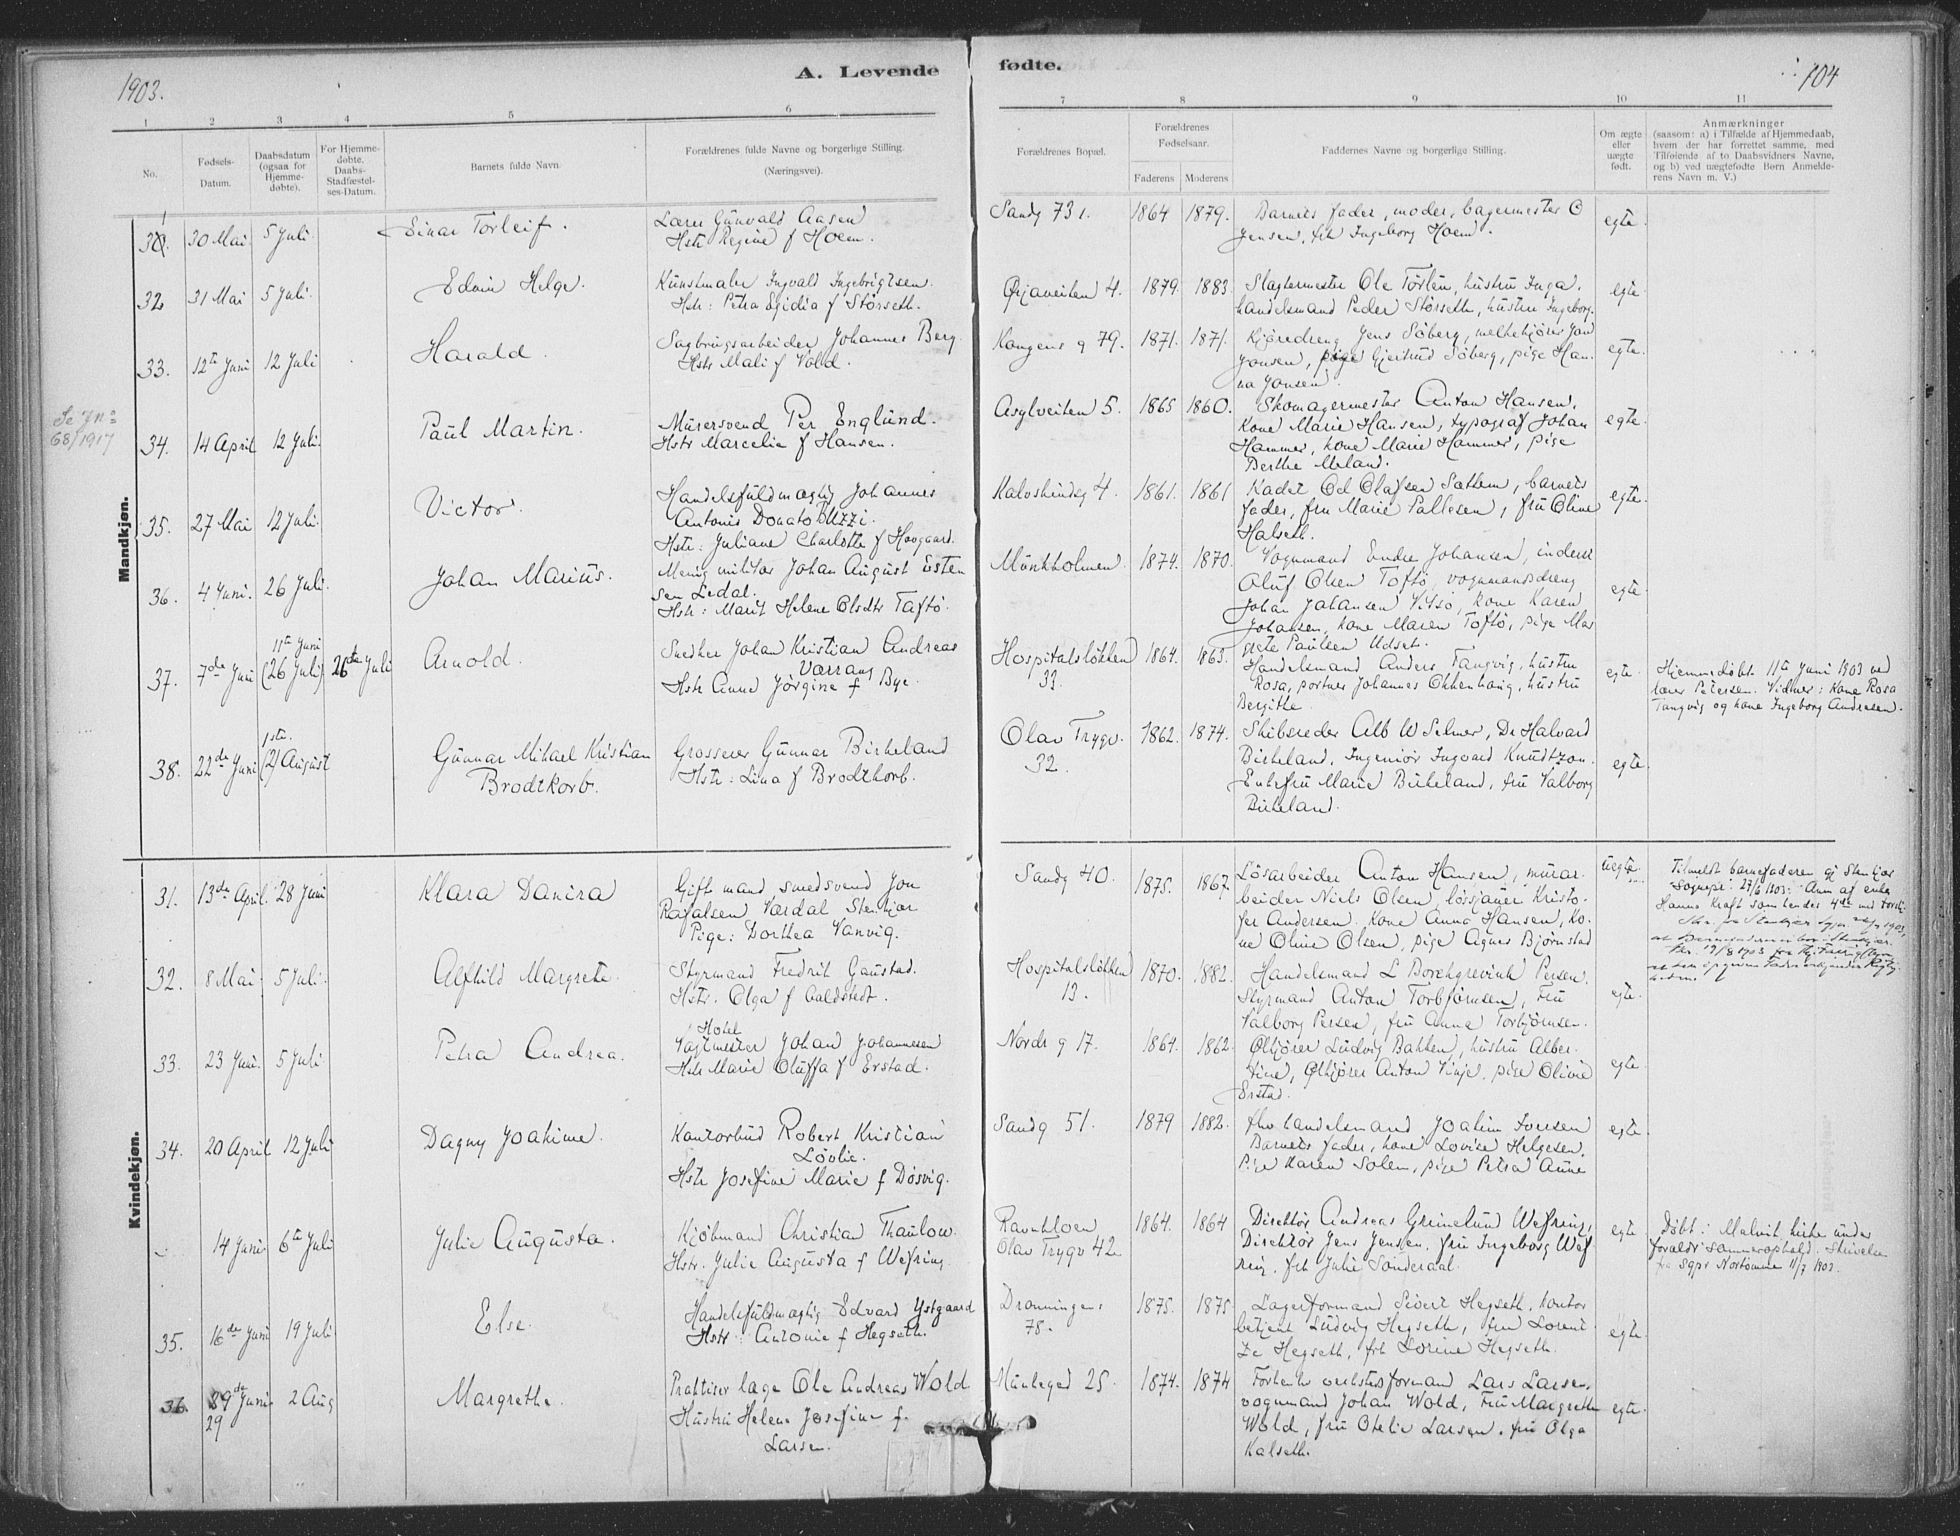 1903.
A. Levende fødte.
104
1 2 3 4 5 6 7 8 9 10 11
No.
Fødsels-
Datum.
Daabsdatum
(ogsaa for
Hjemme-
døbte).
For Hjemme-
døbte.
Daabs-
Stadfæstel-
ses-Datum.
Barnets fulde Navn.
Forældrenes fulde Navne og borgerlige Stilling.
(Næringsvei).
Forældrenes Bopæl.
Forældrenes
Fødselsaar.
Faderens Moderens
Faddernes Navne og borgerlige Stilling.
Om ægte
eller
uægte
født.
Anmærkninger
(saasom: a) i Tilfælde af Hjemmedaab,
hvem der har forrettet samme, med
Tilføiende af to Daabsvidners Navne,
og b) ved uægtefødte Børn Anmelde-
rens Navn m. V.)
Mandkjøn.
31. 30 Mai 5 Juli. Einar Torleif.
Lærer Gunvald Aasen
Hstr Regine f Hoem.
Sandg 73 1864 1879.
Barnets fader, moder, bagermester O
Jensen, frk Ingeborg Hoem.
egte.
32 31 Mai 5 Juli. Edvin Helge.
Kunstmaler Ingvald Ingebrigtsen.
Hstr: Petra Egidia f Störseth.
Örjaveiten 4. 1879. 1883.
Slagtermester Ole Torlen, hustru Inga,
handelsmand Peder Störseth, hustru Ingeborg.
egte.
33. 12te Juni 12 Juli Harald.
Sagbrugsarbeider Johannes Berg
Hstr Mali f Vold.
Kongens g 79. 1871. 1871.
Kjöredreng Jens Söberg, melkekjörer Jon
Jonsen, pige Gjertrud Söberg, pige Han-
na Jonsen.
egte.
Se
68/1917
34. 14 April 12 Juli. Paul Martin.
Murersvend Per Englund.
Hstr Marcelie f Hansen.
Asylveiten 5. 1865 1860.
Skomagermester Anton Hansen,
Kone Marie Hansen, typograf Johan
Hammer, kone Marie Hammer, pige
Berthe Meland.
egte.
35. 27 Mai 12 Juli. Victor.
Handelsfuldmægtig Johannes
Antonis Donato Buzzi.
Hstr: Juliane Charlotte f Hovgaard.
Kalvskindsg 4. 1861. 1861
Kadet Od Olafsen Sæthem, barnets
fader, fru Marie Pallesen, fru Oline
Halseth.
egte.
36. 4 Juni. 26 Juli. Johan Marius.
Menig militær Johan August Esten
sen Ledal.
Hstr: Marit Helene Olsdtr Toftö.
Munkholmen 1874. 1870.
Vogmand Endre Johansen, inderst
Oluf Olsen Toftö, vogmansdreng
Johan Johansen Vitsö, kone Karen
Johansen, kone Maren Toftö, pige Mar
grete Paulsen Udseth.
egte.
37. 7de Juni 11te Juni
(26 Juli) 26de Juli Arnold.
Snedker Johan Kristian Andreas
Værrang
Hstr Anne Jörgine f Bye.
Hospitalslökken
33. 1864. 1863.
Handelsmand Anders Tangvig, hustru
Rosa, portner Johannes Okkenhaug, hustru
Bergithe
egte.
Hjemmedöbt 11te Juni 1903 ved
lærer Petersen. Vidner: Kone Rosa
Tangvig og kone Ingeborg Andresen.
38. 22de Juni 1ste.
(2) August Gunnar Mikael Kristian
Brodtkorb.
Grosserer Gunnar Birkeland
Hstr: Lina f Brodtkorb.
Olav Trygv.
32. 1862. 1874.
Skibsreder Alb W Selmer, Dr Halvard
Birkeland, Ingeniör Ingvard Knudtzon.
Enkefru Marie Birkeland, fru Valborg
Birkeland.
egte.
Kvindekjøn.
31. 13de April 28 Juni Klara Danira
Gift mand smedsvend Jon
Rafalsen Værdal Stenkjær
Pige: Dorthea Vanvig.
Sandg 40. 1875. 1867.
Lösarbeider Anton Hansen, murar-
beider Niels Olsen, lössjauer Kristo-
fer Andersen. Kone Anna Hansen, ko-
ne Oline Olsen, pige Agnes Björnstad
uegte.
Tilmeldt barnefaderen gj Stenkjær
Sognepr. 27/6 1903. Anm af enke
Hanna Kraft som kendes
32. 8 Mai. 5 Juli. Alfhild Margrete.
Styrmand Fredrik Gaustad.
Hstr. Olga f Galdstedt.
Hospitalslökken
13. 1870. 1882.
Handelsmand L Borchgrevink Persen,
Styrmand Anton Torbjörnsen, Fru
Valborg Persen, fru Anna Torbjörnsen.
egte.
33. 23 Juni. 5 Juli. Petra Andrea.
Hotel
Vagtmester Johan Johannesen
Hstr Marie Oluffa f Erstad.
Nordr g 17. 1864. 1862.
Ölkjörer Ludvig Bakken, hustru Alber-
tine, Ölkjörer Anton Vinje, pige Olivie
Erstad.
egte.
34. 20 April 12 Juli Dagny Joakime.
Kontorbud Robert Kristian
Lövlie.
Hstr Josefine Marie f Dösvig.
Sandg 51. 1879 1882.
fhv handelsmand Joakim Iversen
Barnets fader, kone Lovise Helgesen,
Pige Karen Solem, pige Petra Aune
egte.
14 Juni 6te Juli Julie Augusta.
Kjöbmand Christian Thaulow.
Hstr. Julie Augusta f Wefring.
Ravnkloen
Olav Trygv 42 1864. 1864
Direktör Andreas Grimelund Wefring,
Direktör Jens Jensen. fru Ingeborg Wef
ring, frk Julie Sonderaal.
egte
Döbt i Malvik kirke under
forældr sommerophold. Skrivelse
fra Sgpr Nortömme 11/7 1903.
35. 16de Juni 19 Juli Else.
Handelsfuldmægtig Edvard Ystgaard
Hstr: Antonie f Hegseth.
Dronningens
78. 1875. 1875
Lagerformand Sivert Hegseth, kontor
betjent Ludvig Hegseth, fru Lorent-
ze Hegseth, frk Lorine Hegseth.
egte.
36. 29de Juni
29 2 Aug Margrethe.
Praktiser læge Ole Andreas Wold
Hustru Helene Josefine f.
Larsen.
Munkeged 25. 1874. 1874
Forhenv verkstedsformand Lars Larsen,
vogmand Johan Wold, Fru Margrethe
Wold, fru Otelie Larsen. fru Olga
Kalseth.
egte.